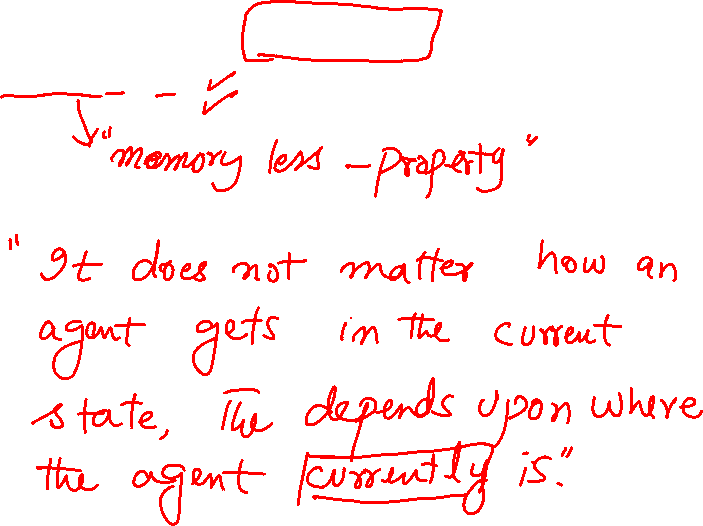 "memory less - property"
"It does not matter how an
agent gets in the current
state, The depends upon where
the agent currently is."